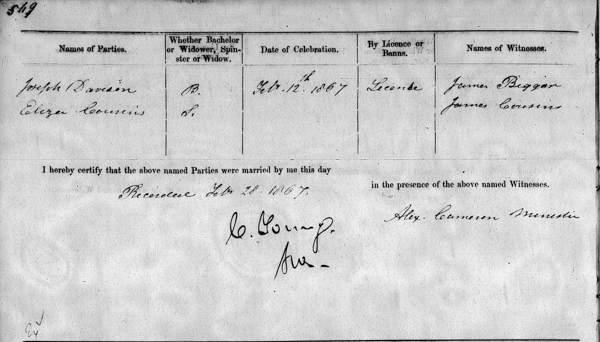 549
Names of Parties. Whether Bachelor or Widower, Spinster or Widow. Date of Celebration. By Licence or Banns. Names of Witnesses.
Joseph Davison B. Feb. 12th 1867 Licence James Biggar
Eliza Cousins S. James Cousin
I hereby certify that the above named Parties were married by me this day
in the presence of the above named Witnesses.
Recorded Feb 28. 1867.
Alex. Cameron Minister
C. Young.